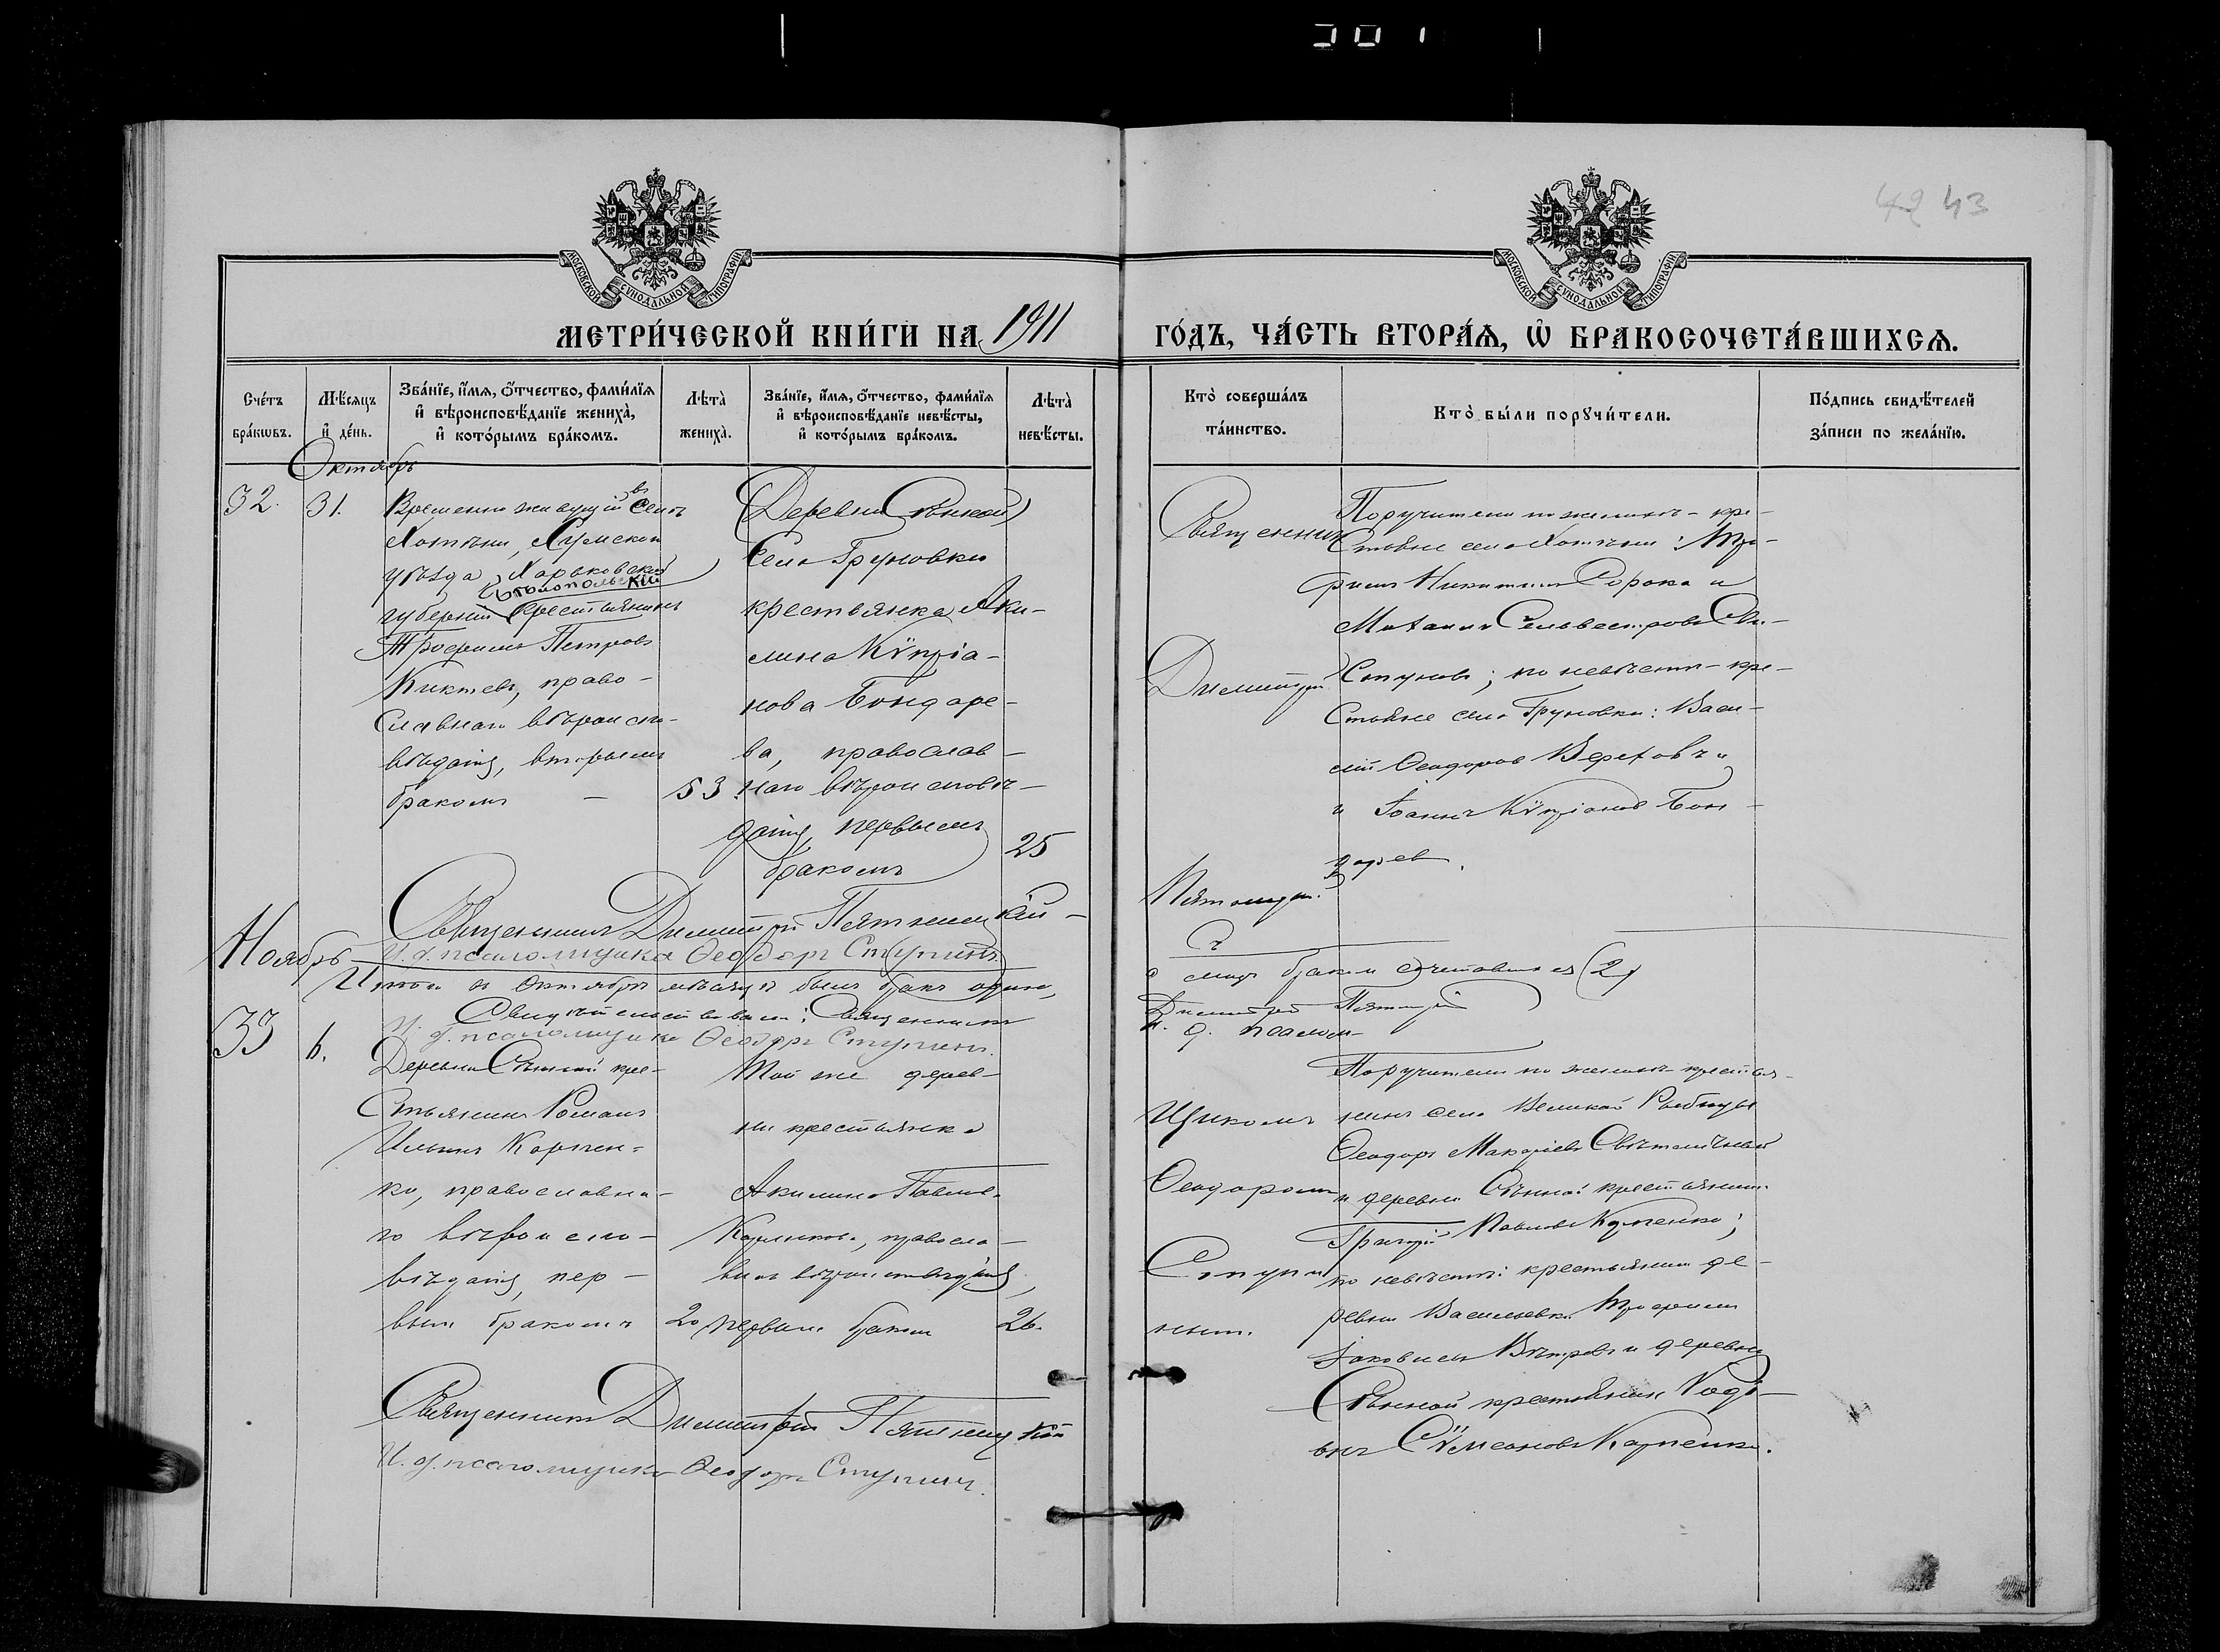 42 43
МОСКОВСКОЙ СѴНОДАЛЬНОЙ ТИПОГРАФІИ
МОСКОВСКОЙ СѴНОДАЛЬНОЙ ТИПОГРАФІИ
МЕТРИ́ЧЕСКОЙ КНИ́ГИ НА 1911
ГО́ДЪ, ЧА́СТЬ ВТОРА́Ѧ, Ѽ БРАКОСОЧЕТА́ВШИХСѦ.
Счéтъ
брáкѡвъ.
Мѣ́сяцъ
и҆ дéнь.
Звáнїе, и҆́мѧ, ѻ҆́тчество, фами́лїѧ
и҆ вѣроисповѣ́данїе женихà,
и҆ котóрымъ брáкомъ.
Лѣтà
женихà.
Звáнїе, и҆́мѧ, ѻ҆́тчество, фами́лїѧ
и҆ вѣроисповѣ́данїе невѣ́сты,
и҆ котóрымъ брáкомъ.
Лѣтà
невѣ́сты.
Ктò совершáлъ
тáинство.
Ктò бы́ли порꙋчи́тели.
Пóдпись свидѣ́телей
зáписи по желáнїю.
Октябрь
32.
31.
Временно живущій въ селѣ
Хотѣни, Сумскаго
уѣзда, Харьковской
Бѣлопольскій
губерніи крестьянинъ
Трофимъ Петровъ
Киктевъ, право-
славнаго вѣроиспо-
вѣданія, вторымъ
бракомъ —
53
Деревни Сѣнной
Села Груновки
крестьянка Аки-
лина Кѵпріа-
нова Бондаре-
ва, православ-
наго вѣроисповѣ-
данія, первымъ
бракомъ
25
Священникъ
Димитрій
Пятницкій
съ
Поручители по женихѣ - кре-
стьяне села Хотѣни: Тро-
фимъ Никитинъ Сорока и
Михаилъ Сельвестровъ
по невѣстѣ - кре-
стьяне села Груновки: Васи-
лій Феодоровъ Верховъ и
и Іоаннъ Кѵпріановъ Бон-
даревъ.
Священникъ Димитрій Пятницкій
И. д. псаломщика Ѳеодоръ Ступинъ.
Ноябрь
Итого въ Октябрѣ мѣсяцѣ былъ бракъ одинъ,
симъ бракомъ сочетавшихся (2)
Свидѣтельствовали: Священникъ
Димитрій Пятницкій
И. д. псаломщика Ѳеодоръ Ступинъ.
и. д. псалом-
33
6.
Деревни Сѣнной кре-
стьянинъ Романъ
Ильинъ Карпен-
ко, православна-
го вѣроиспо-
вѣданія, пер-
вымъ бракомъ
20
Той же дерев-
ни крестьянка
Акилина Павлова
православ-
наго вѣроисповѣданія,
первымъ бракомъ
26.
щикомъ
Ѳеодоромъ
Ступи
нымъ.
Поручители по женихѣ крестья-
нинъ села Великой Рыбицы
Ѳеодоръ Макаріевъ Свѣтличный
и деревни Сѣнной крестьянинъ
Григорій Павловъ Карпенко;
по невѣстѣ: крестьянинъ де-
ревни Васильевки Трофимъ
Іаковлевъ Вѣтровъ и деревни
Сѣнной крестьянинъ Родіо-
нъ Сѵмеоновъ Карпенко.
Священникъ Димитрій Пятницкій
И. д. псаломщика Ѳеодоръ Ступинъ.